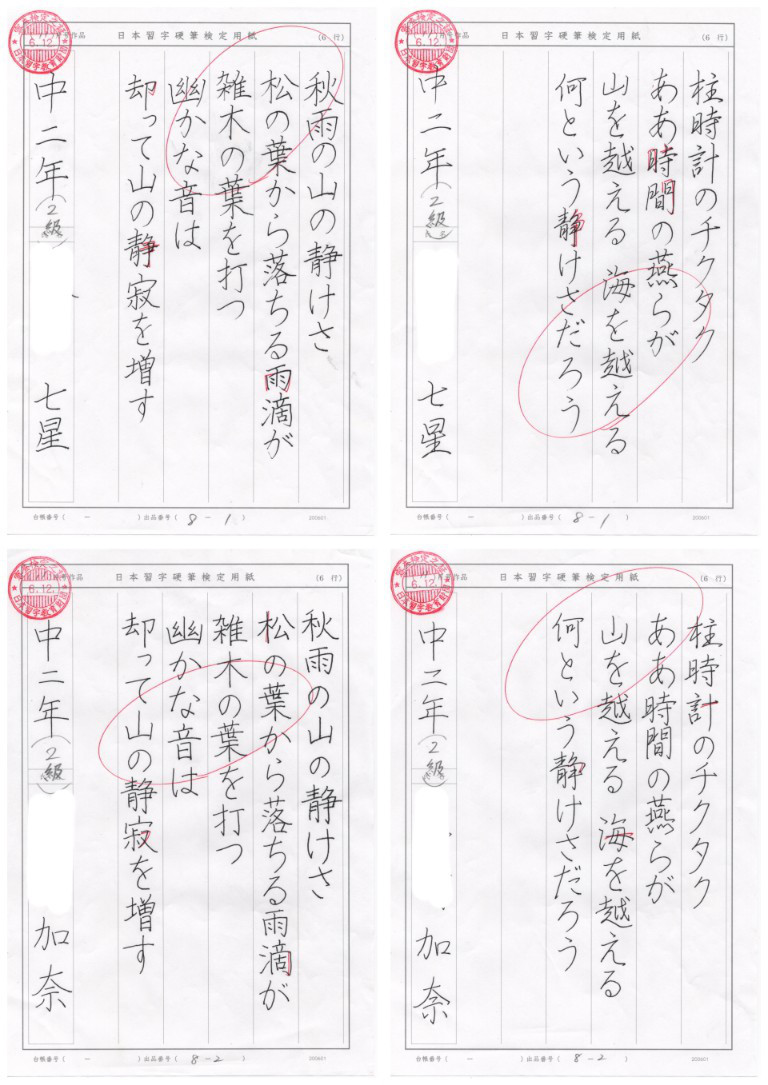 日本習字硬筆検定用紙
(6 行)
6.12.
作品
秋雨の山の静けさ
松の葉から落ちる雨滴が
雑木の葉を打つ
幽かな音は
却って山の静寂を増す
中二年(2級)
七星
台帳番号( - )出品番号( 8-1 )
日本習字硬筆検定用紙
(6 行)
6.12.
作品
柱時計のチクタク
ああ時間の燕らが
山を越える 海を越える
何という静けさだろう
中二年(2級)
七星
台帳番号( - )出品番号( 8-1 )
日本習字硬筆検定用紙
(6 行)
6.12.
作品
秋雨の山の静けさ
松の葉から落ちる雨滴が
雑木の葉を打つ
幽かな音は
却って山の静寂を増す
中二年(2級)
加奈
台帳番号( - )出品番号( 8-2 )
日本習字硬筆検定用紙
(6 行)
6.12.
作品
柱時計のチクタク
ああ時間の燕らが
山を越える 海を越える
何という静けさだろう
中二年(2級)
加奈
台帳番号( - )出品番号( 8-2 )